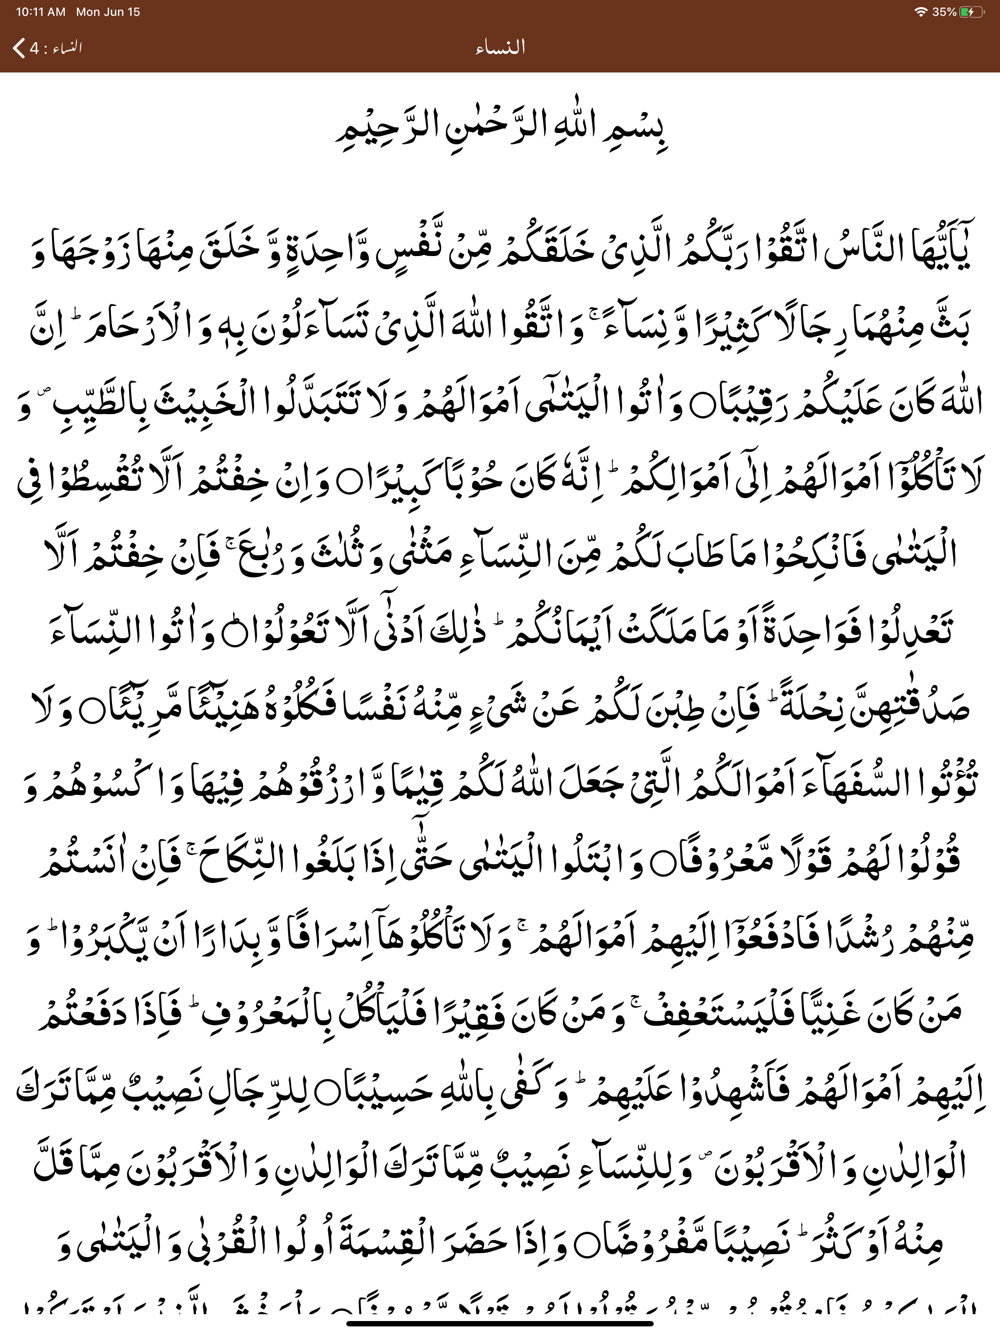 10:11 AM Mon Jun 15 35%
النساء : 4 النساء
بِسْمِ اللّٰهِ الرَّحْمٰنِ الرَّحِيْمِ
يٰٓاَيُّهَا النَّاسُ اتَّقُوْا رَبَّكُمُ الَّذِىْ خَلَقَكُمْ مِّنْ نَّفْسٍ وَّاحِدَةٍ وَّ خَلَقَ مِنْهَا زَوْجَهَا وَ
بَثَّ مِنْهُمَا رِجَالًا كَثِيْرًا وَّ نِسَآءً ۚ وَ اتَّقُوا اللّٰهَ الَّذِىْ تَسَآءَلُوْنَ بِهٖ وَ الْاَرْحَامَ ؕ اِنَّ
اللّٰهَ كَانَ عَلَيْكُمْ رَقِيْبًا○ وَ اٰتُوا الْيَتٰمٰٓى اَمْوَالَهُمْ وَلَا تَتَبَدَّلُوا الْخَبِيْثَ بِالطَّيِّبِ ۖ وَ
لَا تَاْكُلُوْۤا اَمْوَالَهُمْ اِلٰٓى اَمْوَالِكُمْ ؕ اِنَّهٗ كَانَ حُوْبًا كَبِيْرًا○ وَاِنْ خِفْتُمْ اَلَّا تُقْسِطُوْا فِى
الْيَتٰمٰى فَانْكِحُوْا مَا طَابَ لَكُمْ مِّنَ النِّسَآءِ مَثْنٰى وَ ثُلٰثَ وَ رُبٰعَ ۚ فَاِنْ خِفْتُمْ اَلَّا
تَعْدِلُوْا فَوَاحِدَةً اَوْ مَا مَلَكَتْ اَيْمَانُكُمْ ؕ ذٰلِكَ اَدْنٰٓى اَلَّا تَعُوْلُوْا○ؕ وَ اٰتُوا النِّسَآءَ
صَدُقٰتِهِنَّ نِحْلَةً ؕ فَاِنْ طِبْنَ لَكُمْ عَنْ شَىْءٍ مِّنْهُ نَفْسًا فَكُلُوْهُ هَنِيْٓئًا مَّرِيْٓئًا○ وَلَا
تُؤْتُوا السُّفَهَآءَ اَمْوَالَكُمُ الَّتِىْ جَعَلَ اللّٰهُ لَكُمْ قِيٰمًا وَّ ارْزُقُوْهُمْ فِيْهَا وَ اكْسُوْهُمْ وَ
قُوْلُوْا لَهُمْ قَوْلًا مَّعْرُوْفًا○ وَ ابْتَلُوا الْيَتٰمٰى حَتّٰٓى اِذَا بَلَغُوا النِّكَاحَ ۚ فَاِنْ اٰنَسْتُمْ
مِّنْهُمْ رُشْدًا فَادْفَعُوْۤا اِلَيْهِمْ اَمْوَالَهُمْ ۚ وَلَا تَاْكُلُوْهَاۤ اِسْرَافًا وَّ بِدَارًا اَنْ يَّكْبَرُوْا ؕ وَ
مَنْ كَانَ غَنِيًّا فَلْيَسْتَعْفِفْ ۚ وَ مَنْ كَانَ فَقِيْرًا فَلْيَاْكُلْ بِالْمَعْرُوْفِ ؕ فَاِذَا دَفَعْتُمْ
اِلَيْهِمْ اَمْوَالَهُمْ فَاَشْهِدُوْا عَلَيْهِمْ ؕ وَ كَفٰى بِاللّٰهِ حَسِيْبًا○ لِلرِّجَالِ نَصِيْبٌ مِّمَّا تَرَكَ
الْوَالِدٰنِ وَ الْاَقْرَبُوْنَ ۖ وَلِلنِّسَآءِ نَصِيْبٌ مِّمَّا تَرَكَ الْوَالِدٰنِ وَ الْاَقْرَبُوْنَ مِمَّا قَلَّ
مِنْهُ اَوْ كَثُرَ ؕ نَصِيْبًا مَّفْرُوْضًا○ وَ اِذَا حَضَرَ الْقِسْمَةَ اُولُوا الْقُرْبٰى وَ الْيَتٰمٰى وَ